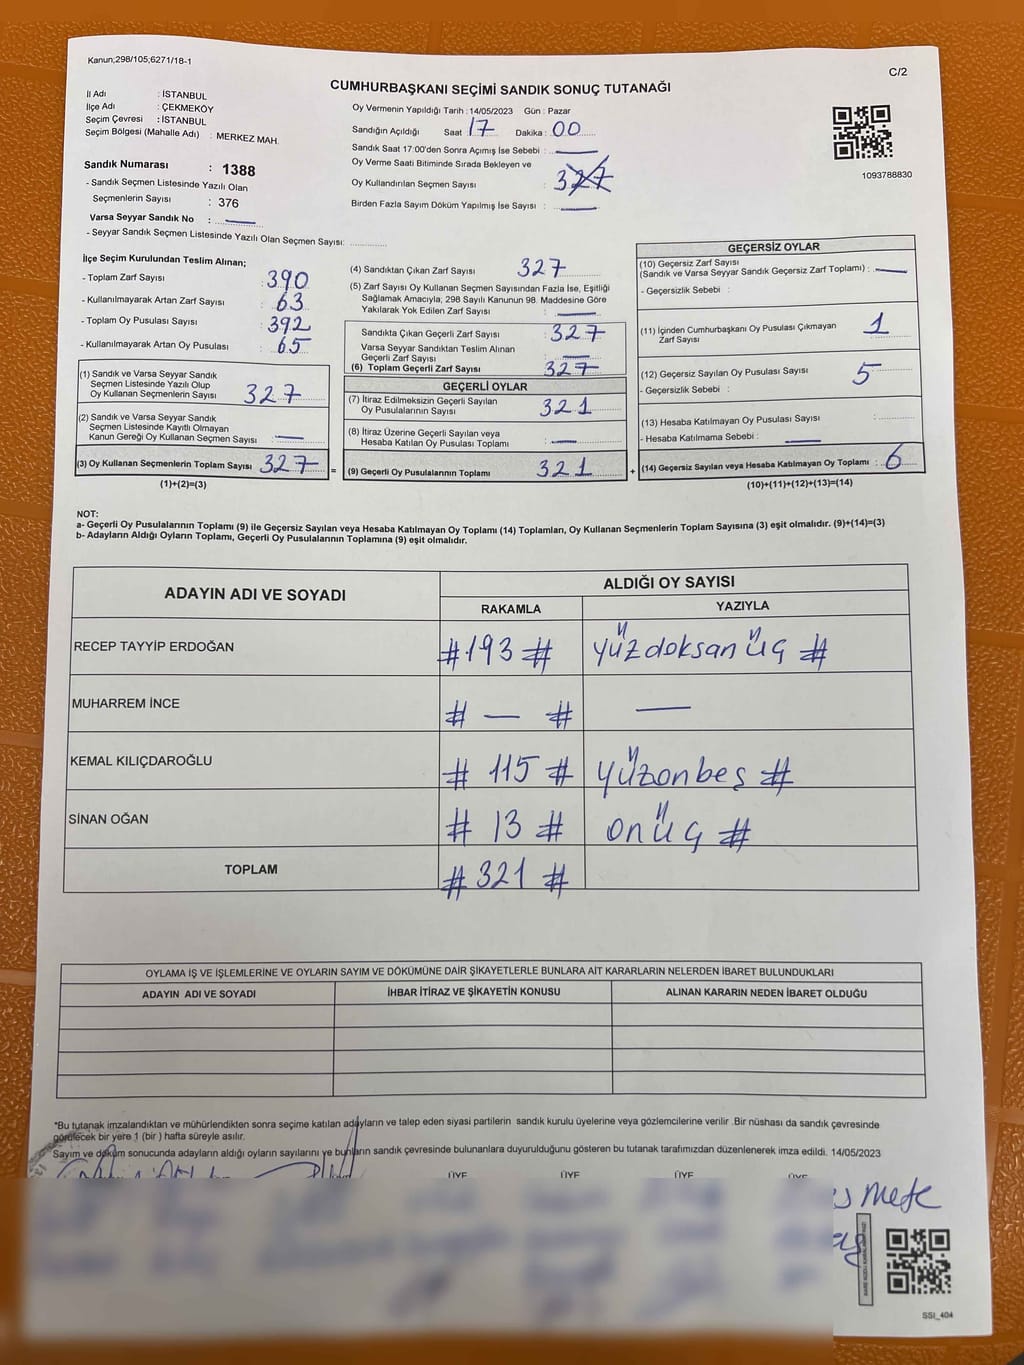 Kanun;298/105;6271/18-1
C/2
CUMHURBAŞKANI SEÇİMİ SANDIK SONUÇ TUTANAĞI
İl Adı : İSTANBUL
İlçe Adı : ÇEKMEKÖY
Seçim Çevresi : İSTANBUL
Seçim Bölgesi (Mahalle Adı) : MERKEZ MAH.
Sandık Numarası : 1388
- Sandık Seçmen Listesinde Yazılı Olan
Seçmenlerin Sayısı : 376
Varsa Seyyar Sandık No : —
- Seyyar Sandık Seçmen Listesinde Yazılı Olan Seçmen Sayısı: ............
Oy Vermenin Yapıldığı Tarih : 14/05/2023 Gün : Pazar
Sandığın Açıldığı Saat 17 Dakika : 00
Sandık Saat 17:00'den Sonra Açımış İse Sebebi : —
Oy Verme Saati Bitiminde Sırada Bekleyen ve
Oy Kullandırılan Seçmen Sayısı : 327
Birden Fazla Sayım Döküm Yapılmış İse Sayısı : —
1093788830
İlçe Seçim Kurulundan Teslim Alınan;
- Toplam Zarf Sayısı : 390
- Kullanılmayarak Artan Zarf Sayısı : 63
- Toplam Oy Pusulası Sayısı : 392
- Kullanılmayarak Artan Oy Pusulası : 65
(1) Sandık ve Varsa Seyyar Sandık
Seçmen Listesinde Yazılı Olup
Oy Kullanan Seçmenlerin Sayısı : 327
(2) Sandık ve Varsa Seyyar Sandık
Seçmen Listesinde Kayıtlı Olmayan
Kanun Gereği Oy Kullanan Seçmen Sayısı : —
(3) Oy Kullanan Seçmenlerin Toplam Sayısı : 327 =
(1)+(2)=(3)
(4) Sandıktan Çıkan Zarf Sayısı : 327
(5) Zarf Sayısı Oy Kullanan Seçmen Sayısından Fazla İse, Eşitliği
Sağlamak Amacıyla; 298 Sayılı Kanunun 98. Maddesine Göre
Yakılarak Yok Edilen Zarf Sayısı : —
Sandıkta Çıkan Geçerli Zarf Sayısı : 327
Varsa Seyyar Sandıktan Teslim Alınan
Geçerli Zarf Sayısı : —
(6) Toplam Geçerli Zarf Sayısı : 327
GEÇERLİ OYLAR
(7) İtiraz Edilmeksizin Geçerli Sayılan
Oy Pusulalarının Sayısı : 321
(8) İtiraz Üzerine Geçerli Sayılan veya
Hesaba Katılan Oy Pusulası Toplamı : —
(9) Geçerli Oy Pusulalarının Toplamı : 321 +
GEÇERSİZ OYLAR
(10) Geçersiz Zarf Sayısı
(Sandık ve Varsa Seyyar Sandık Geçersiz Zarf Toplamı) : —
- Geçersizlik Sebebi :
(11) İçinden Cumhurbaşkanı Oy Pusulası Çıkmayan
Zarf Sayısı : 1
(12) Geçersiz Sayılan Oy Pusulası Sayısı : 5
- Geçersizlik Sebebi :
(13) Hesaba Katılmayan Oy Pusulası Sayısı :
- Hesaba Katılmama Sebebi : —
(14) Geçersiz Sayılan veya Hesaba Katılmayan Oy Toplamı : 6
(10)+(11)+(12)+(13)=(14)
NOT:
a- Geçerli Oy Pusulalarının Toplamı (9) ile Geçersiz Sayılan veya Hesaba Katılmayan Oy Toplamı (14) Toplamları, Oy Kullanan Seçmenlerin Toplam Sayısına (3) eşit olmalıdır. (9)+(14)=(3)
b- Adayların Aldığı Oyların Toplamı, Geçerli Oy Pusulalarının Toplamına (9) eşit olmalıdır.
ADAYIN ADI VE SOYADI ALDIĞI OY SAYISI
RAKAMLA YAZIYLA
RECEP TAYYİP ERDOĞAN #193# yüzdoksan üç #
MUHARREM İNCE # — # —
KEMAL KILIÇDAROĞLU # 115 # yüzonbeş #
SİNAN OĞAN # 13 # onüç #
TOPLAM #321 #
OYLAMA İŞ VE İŞLEMLERİNE VE OYLARIN SAYIM VE DÖKÜMÜNE DAİR ŞİKAYETLERLE BUNLARA AİT KARARLARIN NELERDEN İBARET BULUNDUKLARI
ADAYIN ADI VE SOYADI İHBAR İTİRAZ VE ŞİKAYETİN KONUSU ALINAN KARARIN NEDEN İBARET OLDUĞU
*Bu tutanak imzalandıktan ve mühürlendikten sonra seçime katılan adayların ve talep eden siyasi partilerin sandık kurulu üyelerine veya gözlemcilerine verilir .Bir nüshası da sandık çevresinde
görülecek bir yere 1 (bir ) hafta süreyle asılır.
Sayım ve döküm sonucunda adayların aldığı oyların sayılarını ve bunların sandık çevresinde bulunanlara duyurulduğunu gösteren bu tutanak tarafımızdan düzenlenerek imza edildi. 14/05/2023
ÜYE ÜYE ÜYE ÜYE
Mete
SSI_404